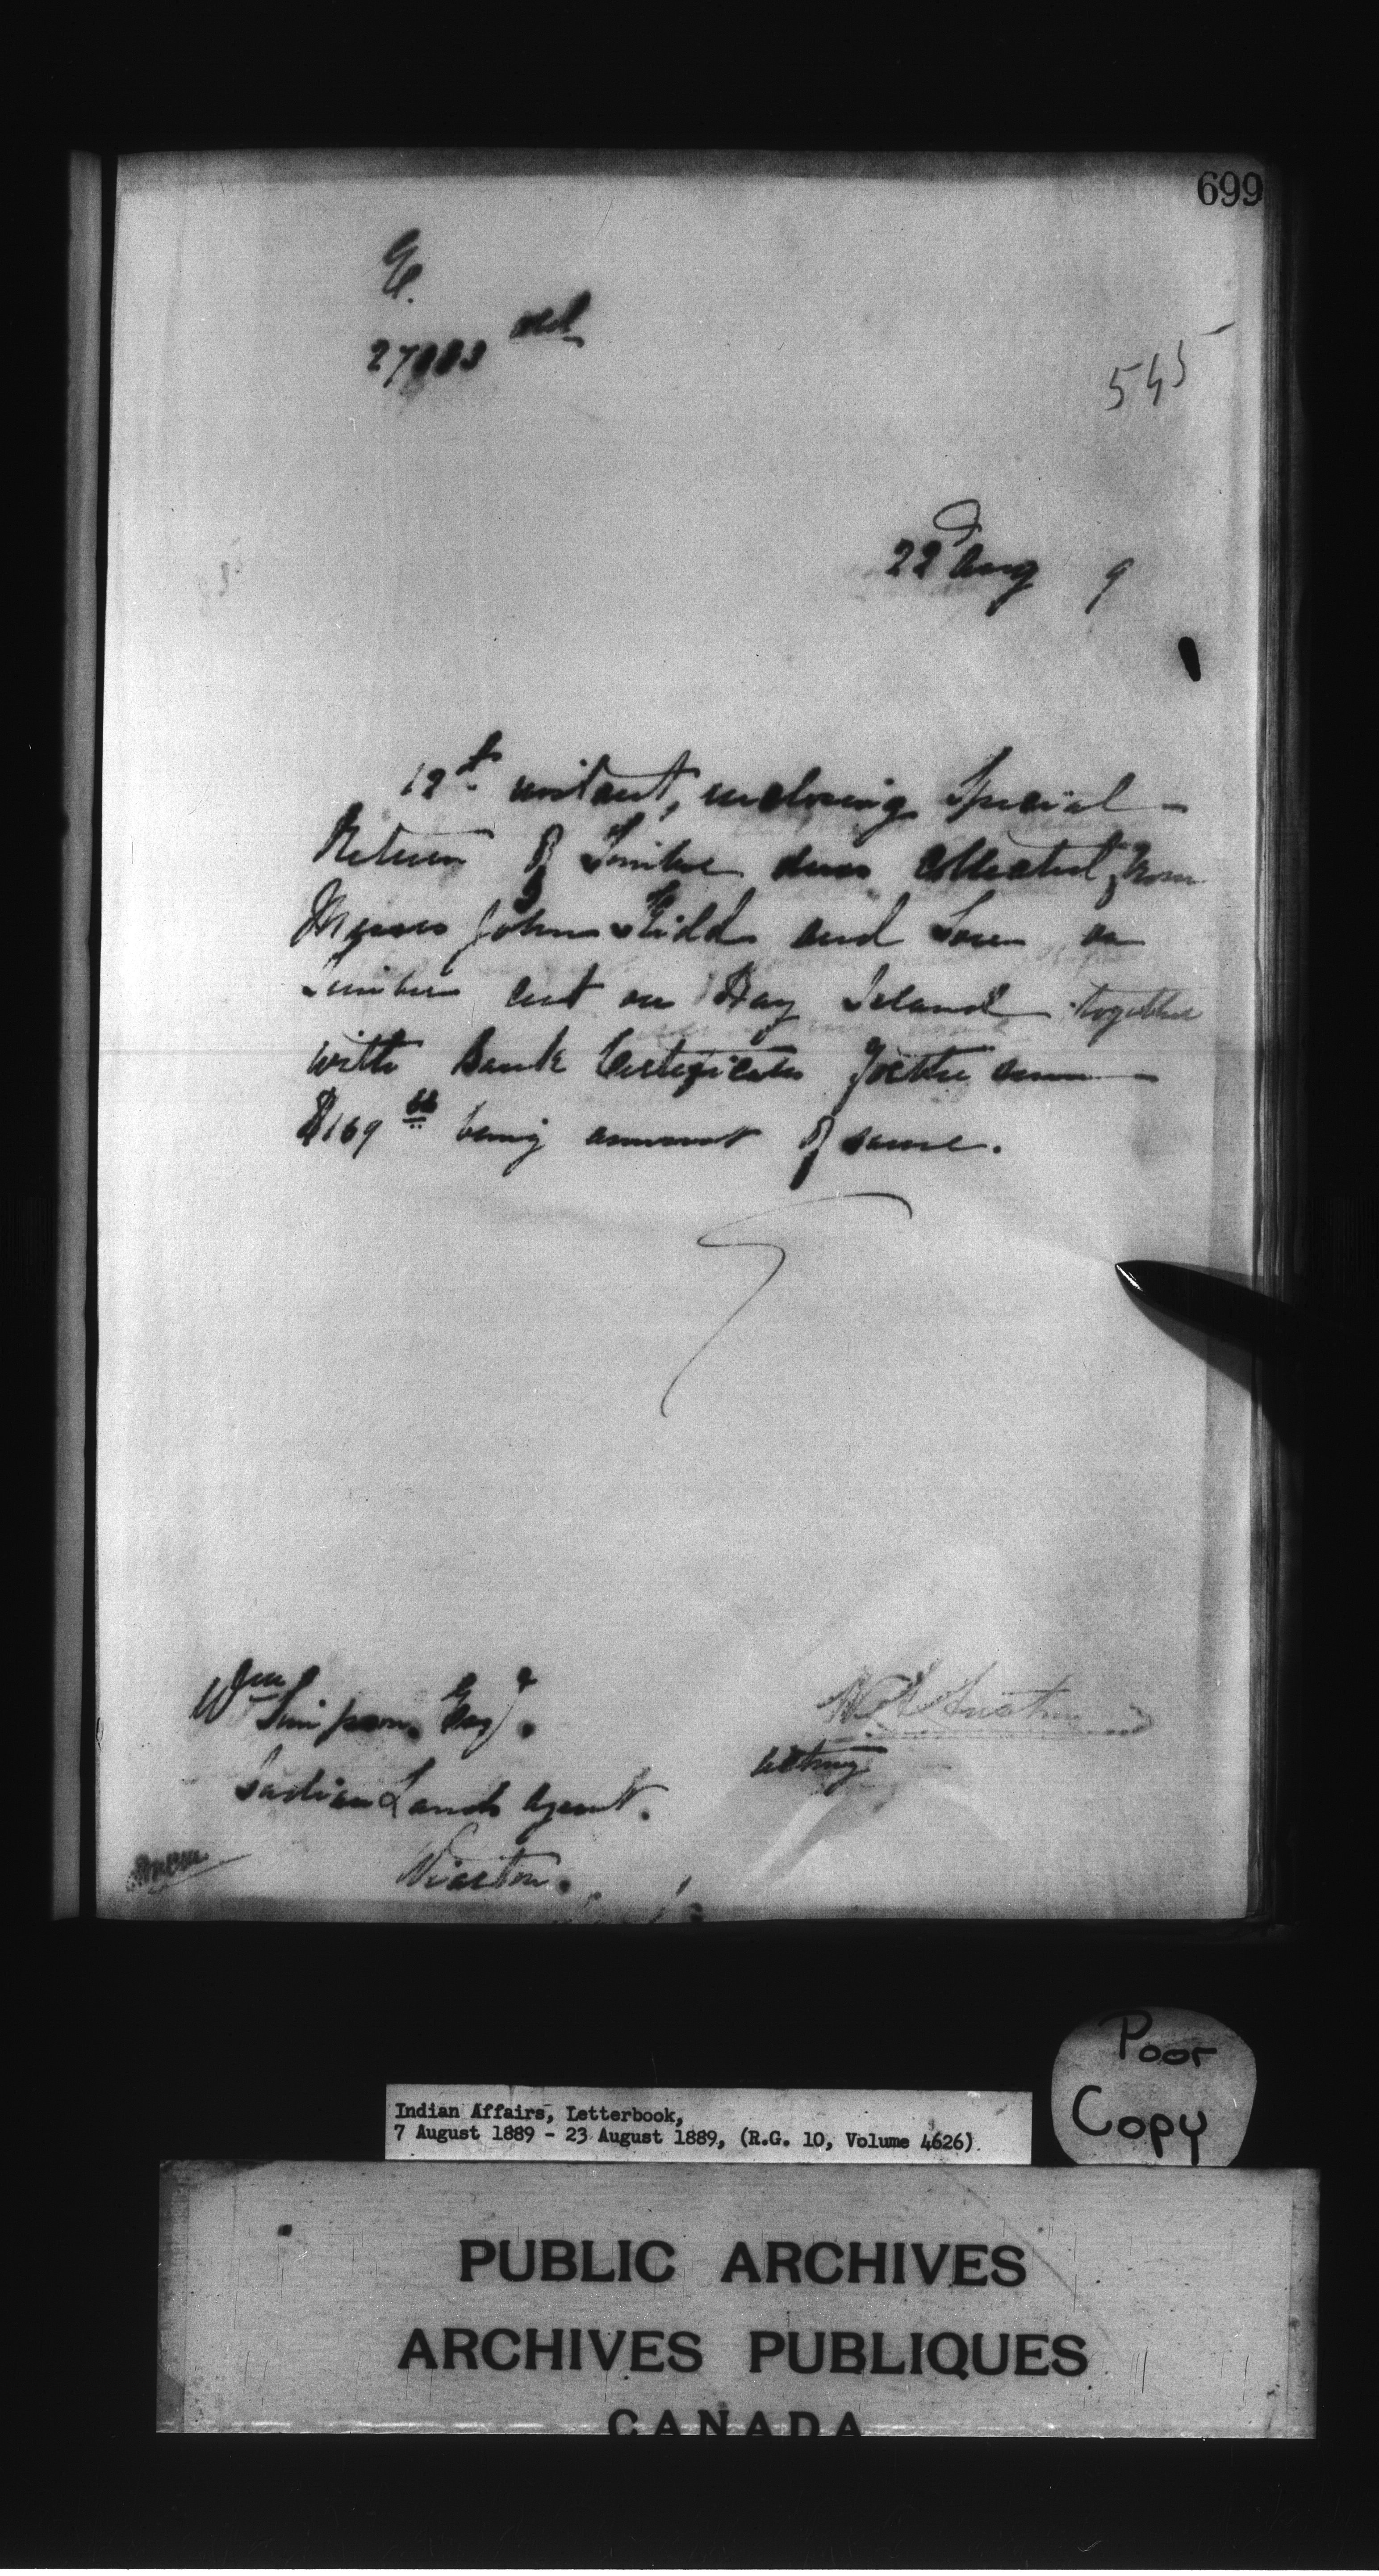 699
545
22d Aug 9
19th instant, inclosing Special
Return of Timber dues collected from
Messrs John Kidd and Son on
Timber cut on Hay Island together
with Bank Certificate for the sum
$169 66 being amount of same.
Wm Simpson Esqr.
Acting
Indian Lands Agent.
Wiarton.
Poor
Copy
Indian Affairs, Letterbook,
7 August 1889 - 23 August 1889, (R.G. 10, Volume 4626)
PUBLIC ARCHIVES
ARCHIVES PUBLIQUES
CANADA